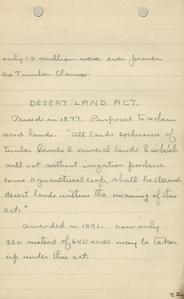 only 10 million were ever proven
as Timber Claims.
DESERT LAND ACT.
Passed in 1877. Purposed to reclaim
arid lands. "All lands exclusive of
timber lands & mineral lands which
will not without irrigation produce
some agricultural crop, shall be deemed
desert lands within the meaning of this
act."
amended in 1891. now only
320 instead of 640 acres may be taken
up under this act.